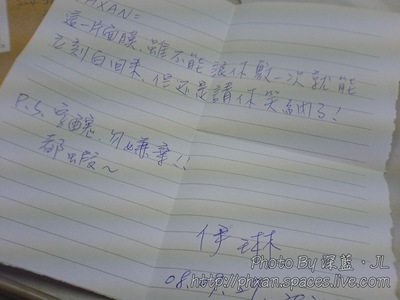 PHXAN=
這一片面膜,雖不能讓你敷一次就能
立刻白回來,但還是請你笑納了!
P.S. 字醜,勿嫌棄!!
伊琳
08.
Photo By 深藍·JL
http://phxan.spaces.live.com/